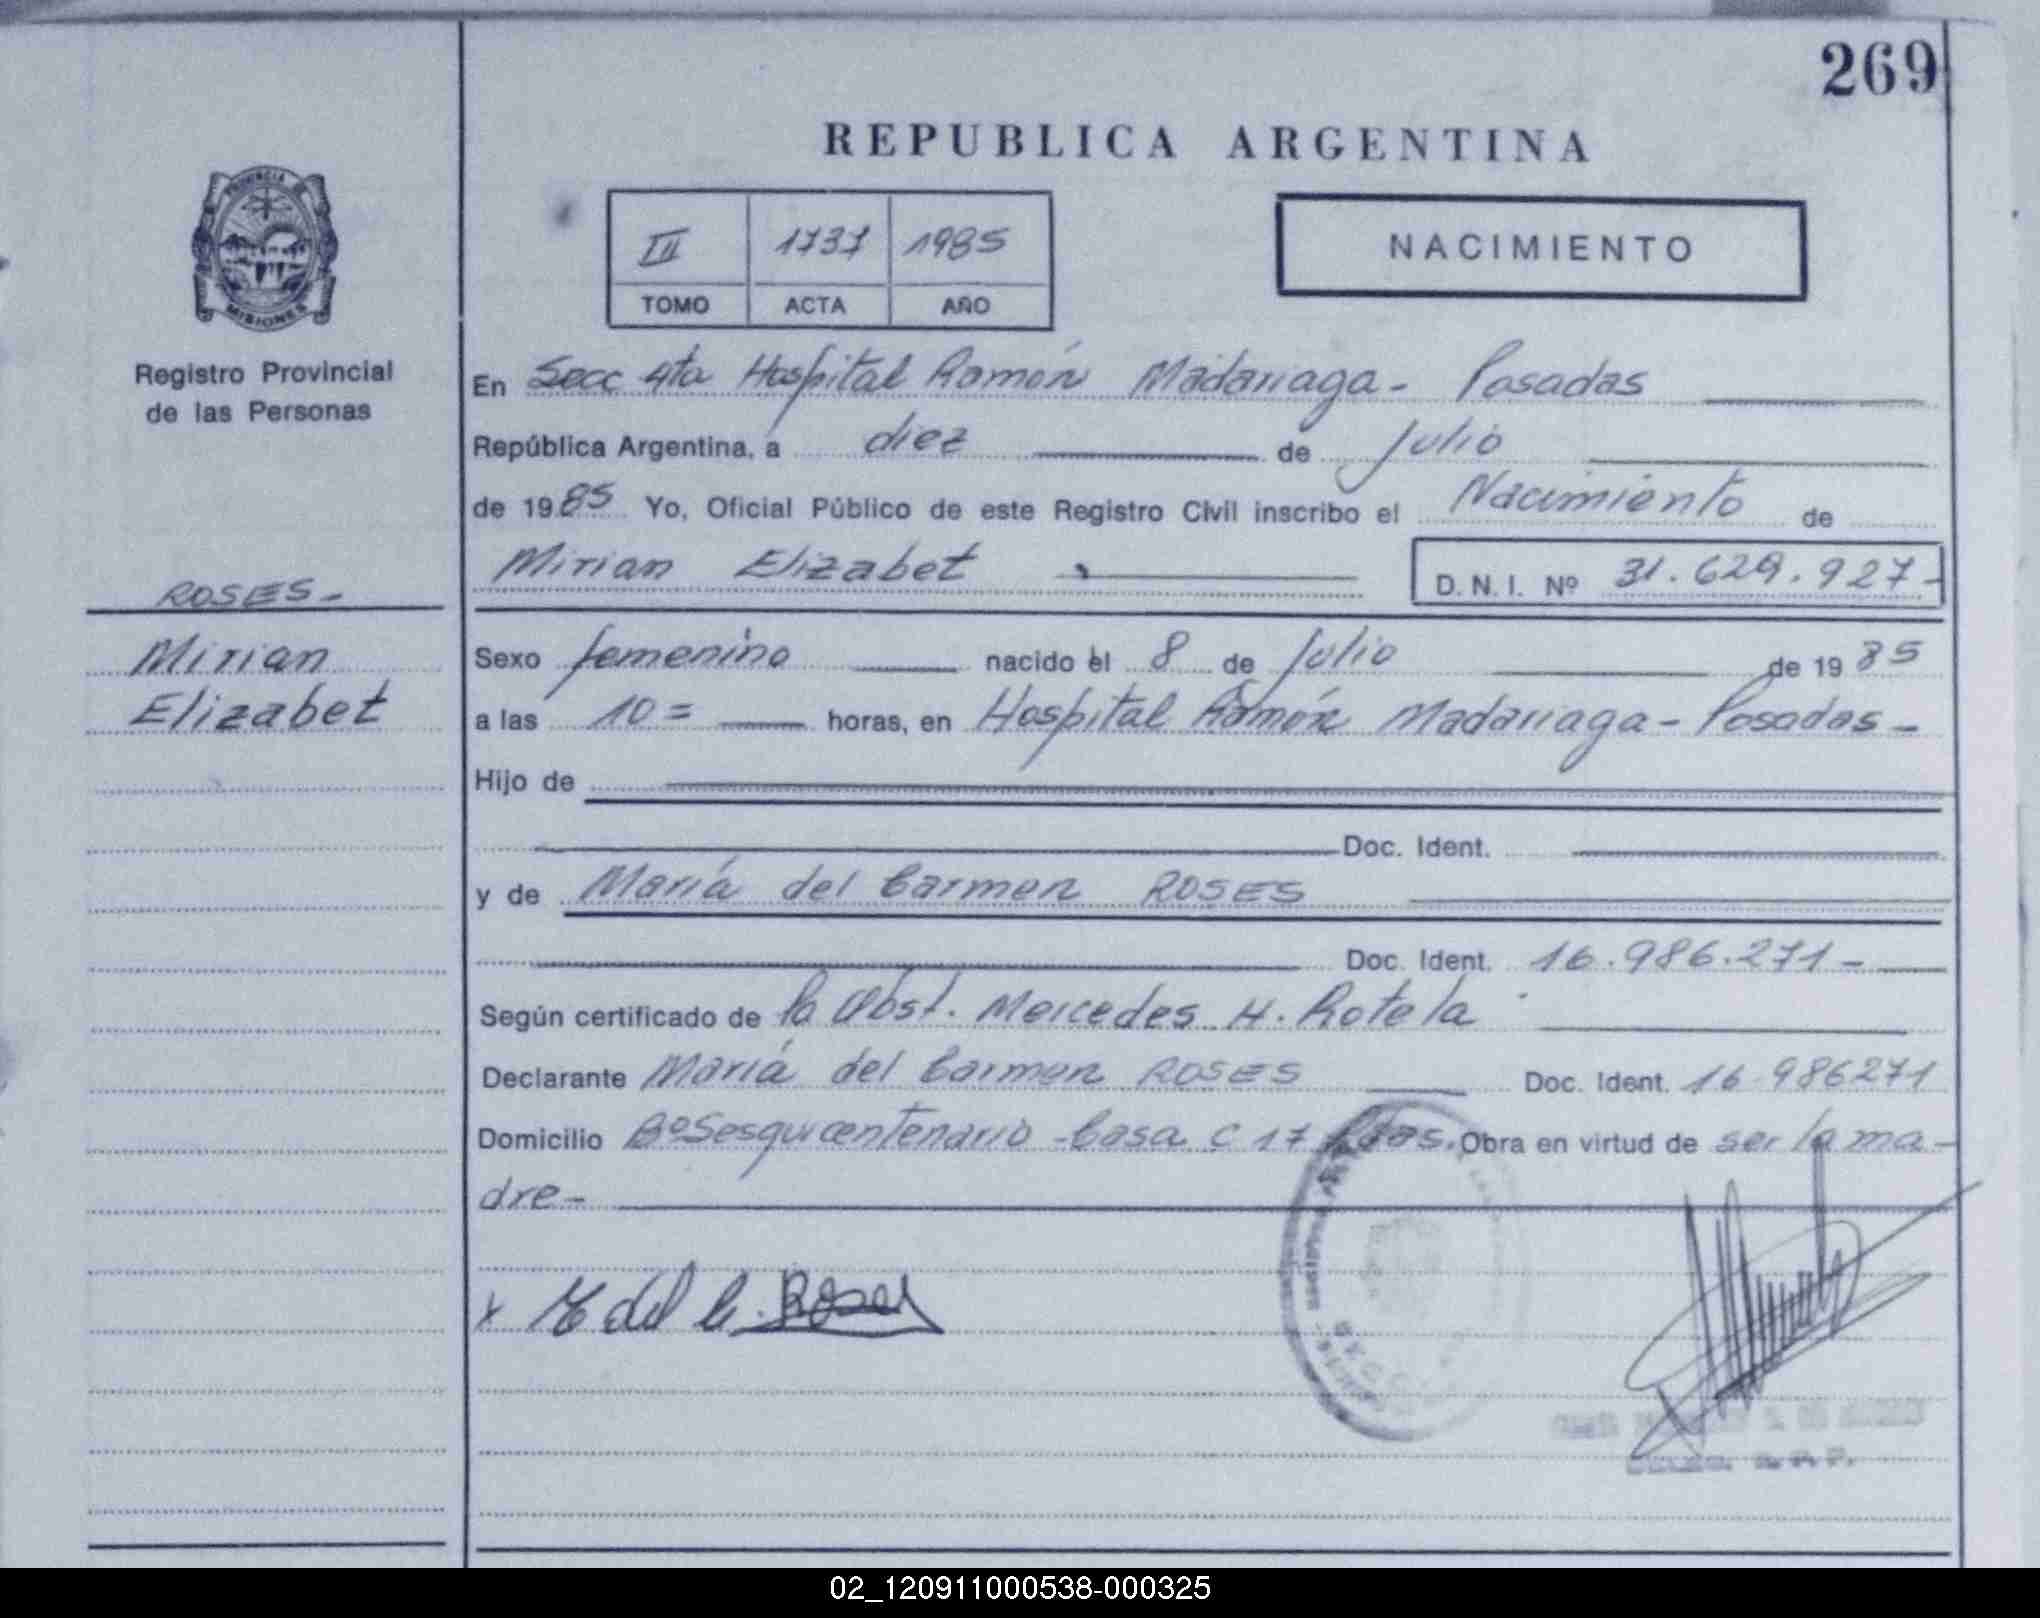 269
REPUBLICA ARGENTINA
PROVINCIA DE
MISIONES
Registro Provincial
de las Personas
III 1737 1985
TOMO ACTA AÑO
NACIMIENTO
En Secc 4ta Hospital Ramón Madariaga - Posadas
República Argentina, a diez de Julio
de 1985 Yo, Oficial Público de este Registro Civil inscribo el Nacimiento de
Mirian Elizabet D. N. I. Nº 31.629.927-
ROSES-
Mirian
Elizabet
Sexo femenino nacido el 8 de Julio de 1985
a las 10= horas, en Hospital Ramón Madariaga - Posadas -
Hijo de
Doc. Ident.
y de María del Carmen ROSES
Doc. Ident. 16.986.271-
Según certificado de la Obst. Mercedes H. Rotela
Declarante María del Carmen ROSES Doc. Ident. 16.986271
Domicilio BºSesquicentenario - Casa C 17 Pdas. Obra en virtud de ser la ma-
dre-
x M del C. Roses
02_120911000538-000325